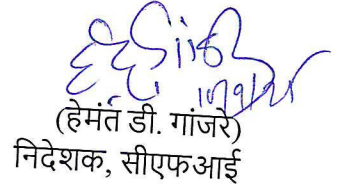 (हेमंत डी. गांजरे)
निदेशक, सीएफआई